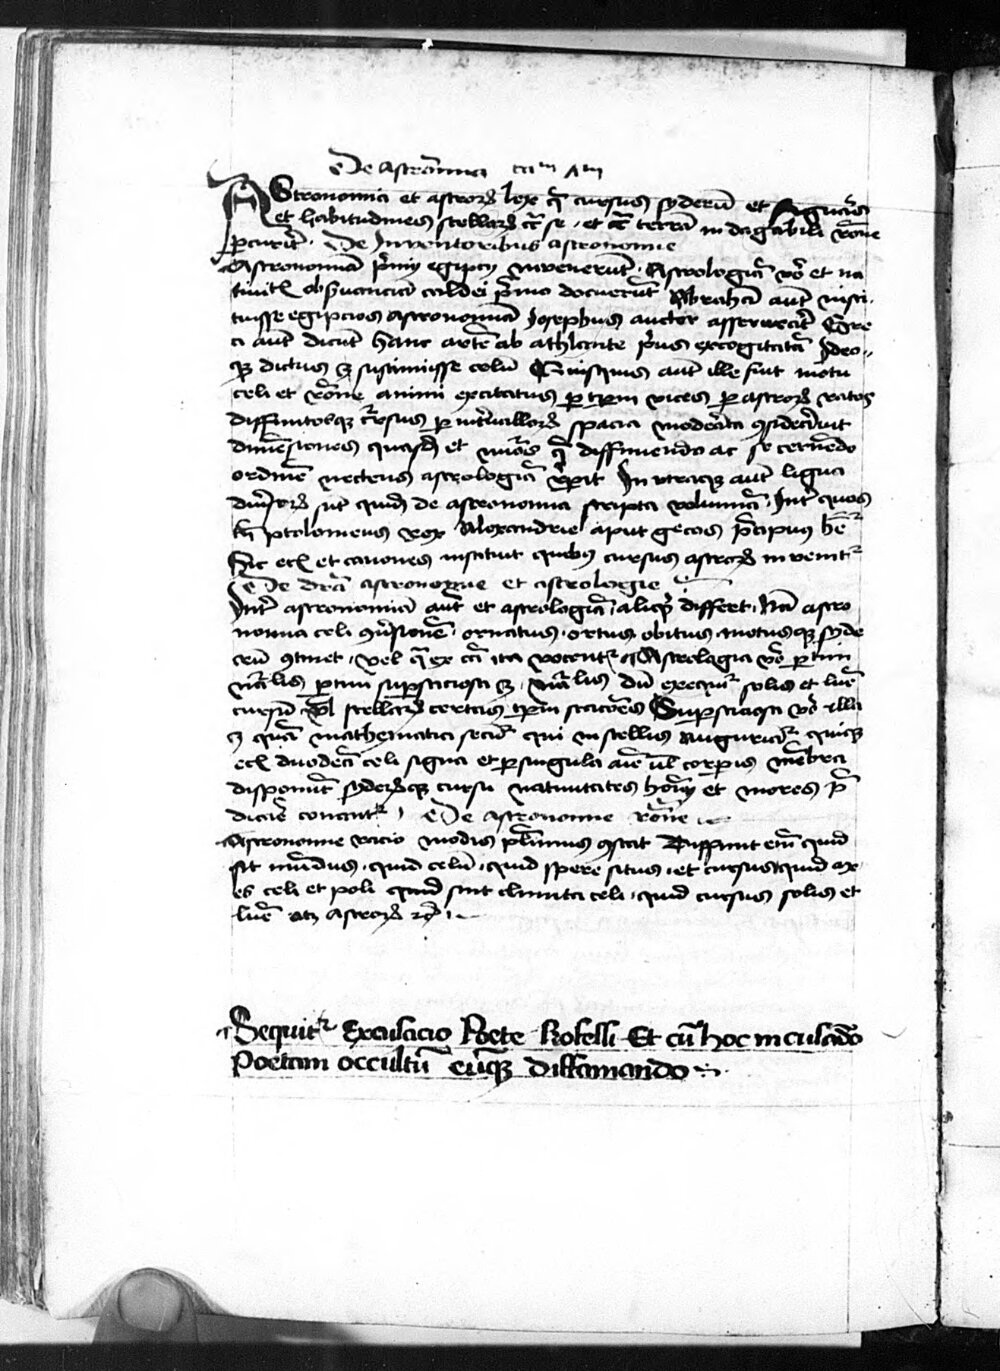 De astronomia cam Am
Astronomia et astrorum lex que cursus syderum et figuras
et habitudines stellarum circa se et circa terram indagabili racione
percurrit. De Inventoribus astronomie
Astronomiam primi egipcii invenerunt. Astrologiam vero et na
tivitatis observanciam caldei primo docuerunt Abraham autem insti
tuisse egipcios astronomiam Josephus auctor asseruerit Gre
ci autem dicunt hanc artem ab athlante prius excogitatam Ideo
que dictus est sustinuisse celum Quisquis autem ille fuit motu
celi et racione animi excitatus per temporum vices per astrorum ratos
diffinitosque cursus per intervallorum spacia moderata consideravit
dimensiones quasdam et numeros que diffiniendo ac secernendo
ordinem nectens astrologiam reperit In utraque autem ligua
diversorum sunt quidem de astronomia scripta volumina. Inter quos
tamen ptolomeus rex Alexandrie aput grecos precipuus habetur
Hic etiam et canones instituit quibus cursus astrorum invenitur
De differencia astronomie et astrologie
Inter astronomiam autem et astrologiam aliquid differt. Nam astro
nomia celi conversionem. ornatus. ortus obitus motusque syde
rum continet. vel qua ex causa ita vocentur Astrologia vero partim
naturalis partim supersticiosa est. naturalis dum exequitur solis et lune
cursum vel stellarum certas temporum staciones Supersticiosa vero illa
est quam mathematici secuntur qui in stellis auguriantur quique
etiam duodecim celi signa et per singula anime vel corporis membra
disponunt syderumque cursu nativitates hominum et mores pre
dicare conantur. De astronomie racione
Astronomie racio modis plurimis constat Diffinit enim quid
sit mundus. quid celum. quid spere situs. et cursus quid ax
es celi et poli quid sint climata celi. quid cursus solis et
lune atque astrorum etc.
Sequitur Exculacio Poete Rofelli Et cum hoc inculando
Poetam occultum eumque diffamando